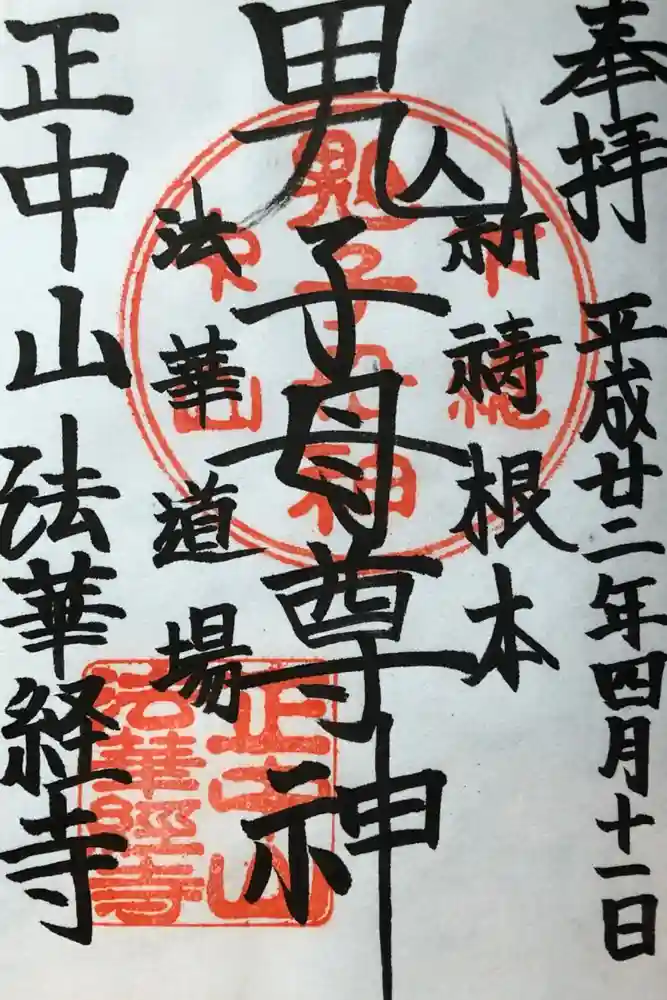 奉拝 平成廿二年四月十一日
祈祷根本
鬼子母尊神
法華道場
正中山法華経寺
鬼子母神
中山
正中山
法華經寺